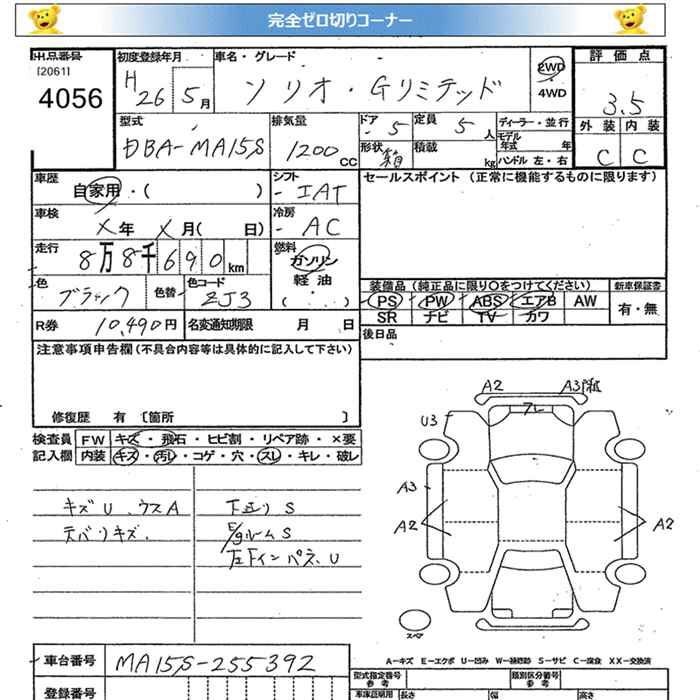 完全ゼロ切りコーナー
出品番号
[2061]
4056
初度登録年月
H 26 5月
車名・グレード
ソリオ・Gリミテッド
2WD
4WD
評価点
3.5
型式
DBA-MA15S
排気量
1200 cc
ドア
- 5
形状
箱
定員
5人
積載
kg
ディーラー・並行
モデル年式 年
ハンドル 左・右
外装 内装
C C
車歴
自家用・( )
シフト
- IAT
セールスポイント (正常に機能するものに限ります)
車検
X年 X月( 日)
冷房
- AC
走行
8万8千690km
燃料
ガソリン
軽油
( . )
色
ブラック
色替
色コード
ZJ3
装備品 (純正品に限り〇をつけてください)
新車保証書
PS PW ABS エアB AW
SR ナビ TV カワ
有・無
R券 10,490円
名変通知期限 月 日
後日品
注意事項申告欄 (不具合内容等は具体的に記入して下さい)
修復歴 有 〔箇所 〕
検査員
記入欄
FW キズ・飛石・ヒビ割・リペア跡・×要
内装 キズ・汚レ・コゲ・穴・スレ・キレ・破レ
キズU、ウスA
天バリキズ.
下廻り S
E/gルーム S
左下インパネ、U
A2
A3
フレ
U3
A3
A2
A2
スペア
A-キズ E-エクボ U-凹み W-補修跡 S-サビ C-腐食 XX-交換済
車台番号 MA15S-255392
登録番号
型式指定番号
参考
類別区分番号
参考
車庫証明用
長さ
幅
高さ